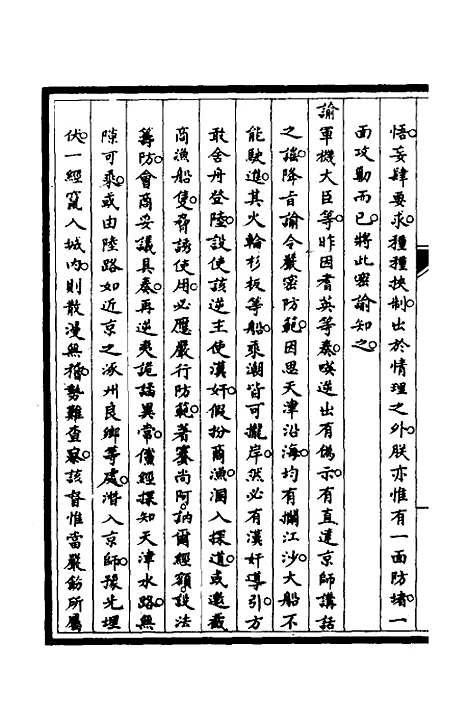 悟妄肆要求種種挾制出於情理之外朕亦惟有一面防堵一
面攻勦而已將此密諭知之
諭軍機大臣等昨因耆英等奏暎逆出有偽示有直達京師講話
之謠降旨諭令嚴密防範因思天津沿海均有攔江沙大船不
能駛進其火輪杉板等船乘潮皆可攏岸然必有漢奸導引方
敢舍舟登陸設使該逆主使漢奸假扮商漁溷入探道或邀截
商漁船隻脅誘使用必應嚴行防範著賽尚阿訥爾經額設法
籌防會商妥議具奏再逆夷詭譎異常儻經探知天津水路無
隙可乘或由陸路如近京之涿州良鄉等處潛入京師豫先埋
伏一經竄入城內則散漫無稽勢難查察該督惟當嚴飭所屬